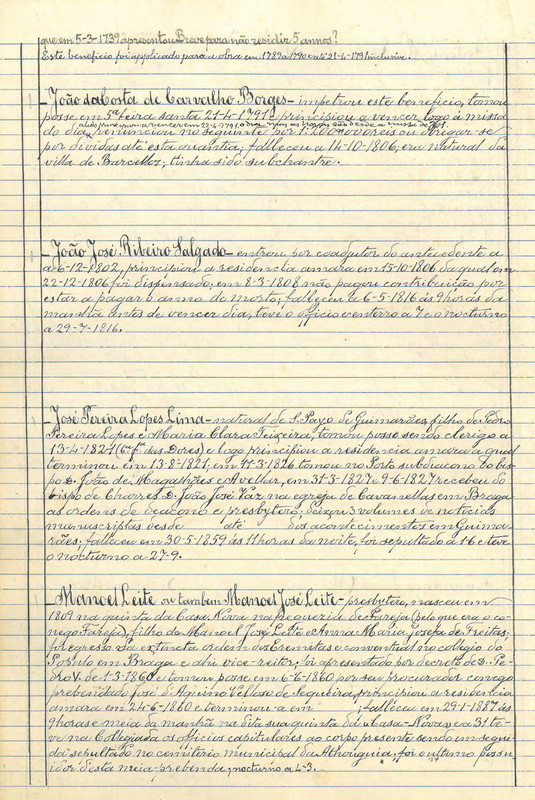 que em 5-3-1739 apresentou Breve para não residir 5 annos?
Este beneficio foi applicado para a obra em 1789 a 1790 em 21-4-1791 inclusive.
João da Costa de Carvalho Borges - impetrou este beneficio, tomou
posse em 5ª feira santa 21-4-1791 e principiou a vencer logo á missa
do dia, renunciou no seguinte por 1:200#000 reis ou obrigar-se
por dividas até esta quantia; falleceu a 14-10-1806; era natural da
villa de Barcellos; tinha sido subchantre.
João José Ribeiro Salgado - entrou por coadjutor do antecedente a
a 6-12-1802, principiou a residencia amara em 15-10-1806 da qual em
22-12-1806 foi dispensado; em 8-3-1808 não pagou contribuição por
estar a pagar o anno de morto; falleceu a 6-5-1816 ás 9 horas da
manhã antes de vencer dia, teve o officio e enterro a 7 e o nocturno
a 29-7-1816.
José Pereira Lopes Lima - natural de S. Payo de Guimarães, filho de Pedro
Pereira Lopes e Maria Clara Teixeira, tomou posse sendo clerigo a
13-4-1821 (6ª fª das Dores) e logo principiou a residencia amara a qual
terminou em 13-8-1821, em 17-3-1826 tomou no Porto subdiacono do bis-
po D. João de Magalhães e Avellar, em 31-3-1827 e 9-6-1827 recebeu do
bispo de D. João José Vaz na egreja de Cavanellas em Braga
as ordens de deacono e presbytero; deixou 3 volumes de noticias
manuscriptas desde até dos acontecimentos em Guima-
rães; falleceu em 30-5-1859 ás 11 horas da noite, foi sepultado a 1-6 e teve
o nocturno a 27-9.
Manoel Leite ou tambem Manoel José Leite - presbytero, nasceu em
1809 na quinta da Casa Nova na freguezia de Fareja (pelo que era o co-
nego Fareja), filho de Manoel José Leite e Anna Maria Josefa de Freitas;
foi egresso da extincta ordem dos Eremitas e conventual no collegio do
Populo em Braga e ahi vice-reitor; foi apresentado por decreto de D. Pe-
dro V. de 1-3-1860 e tomou posse em 6-6-1860 por seu procurador conego
prebendado José d'Aquino Velloso de Sequeira, principiou a residencia
amara em 24-6-1860 e terminou-a em ; falleceu em 29-1-1887 ás
9 horas e meia da manhã na dita sua quinta da Casa-Nova; e a 31 te-
ve na Collegiada os officios capitulares ao corpo presente sendo em segui-
da sepultado no cemiterio municipal da Athouguia; foi o ultimo possu-
idor d'esta meia prebenda; nocturno a 4-3.